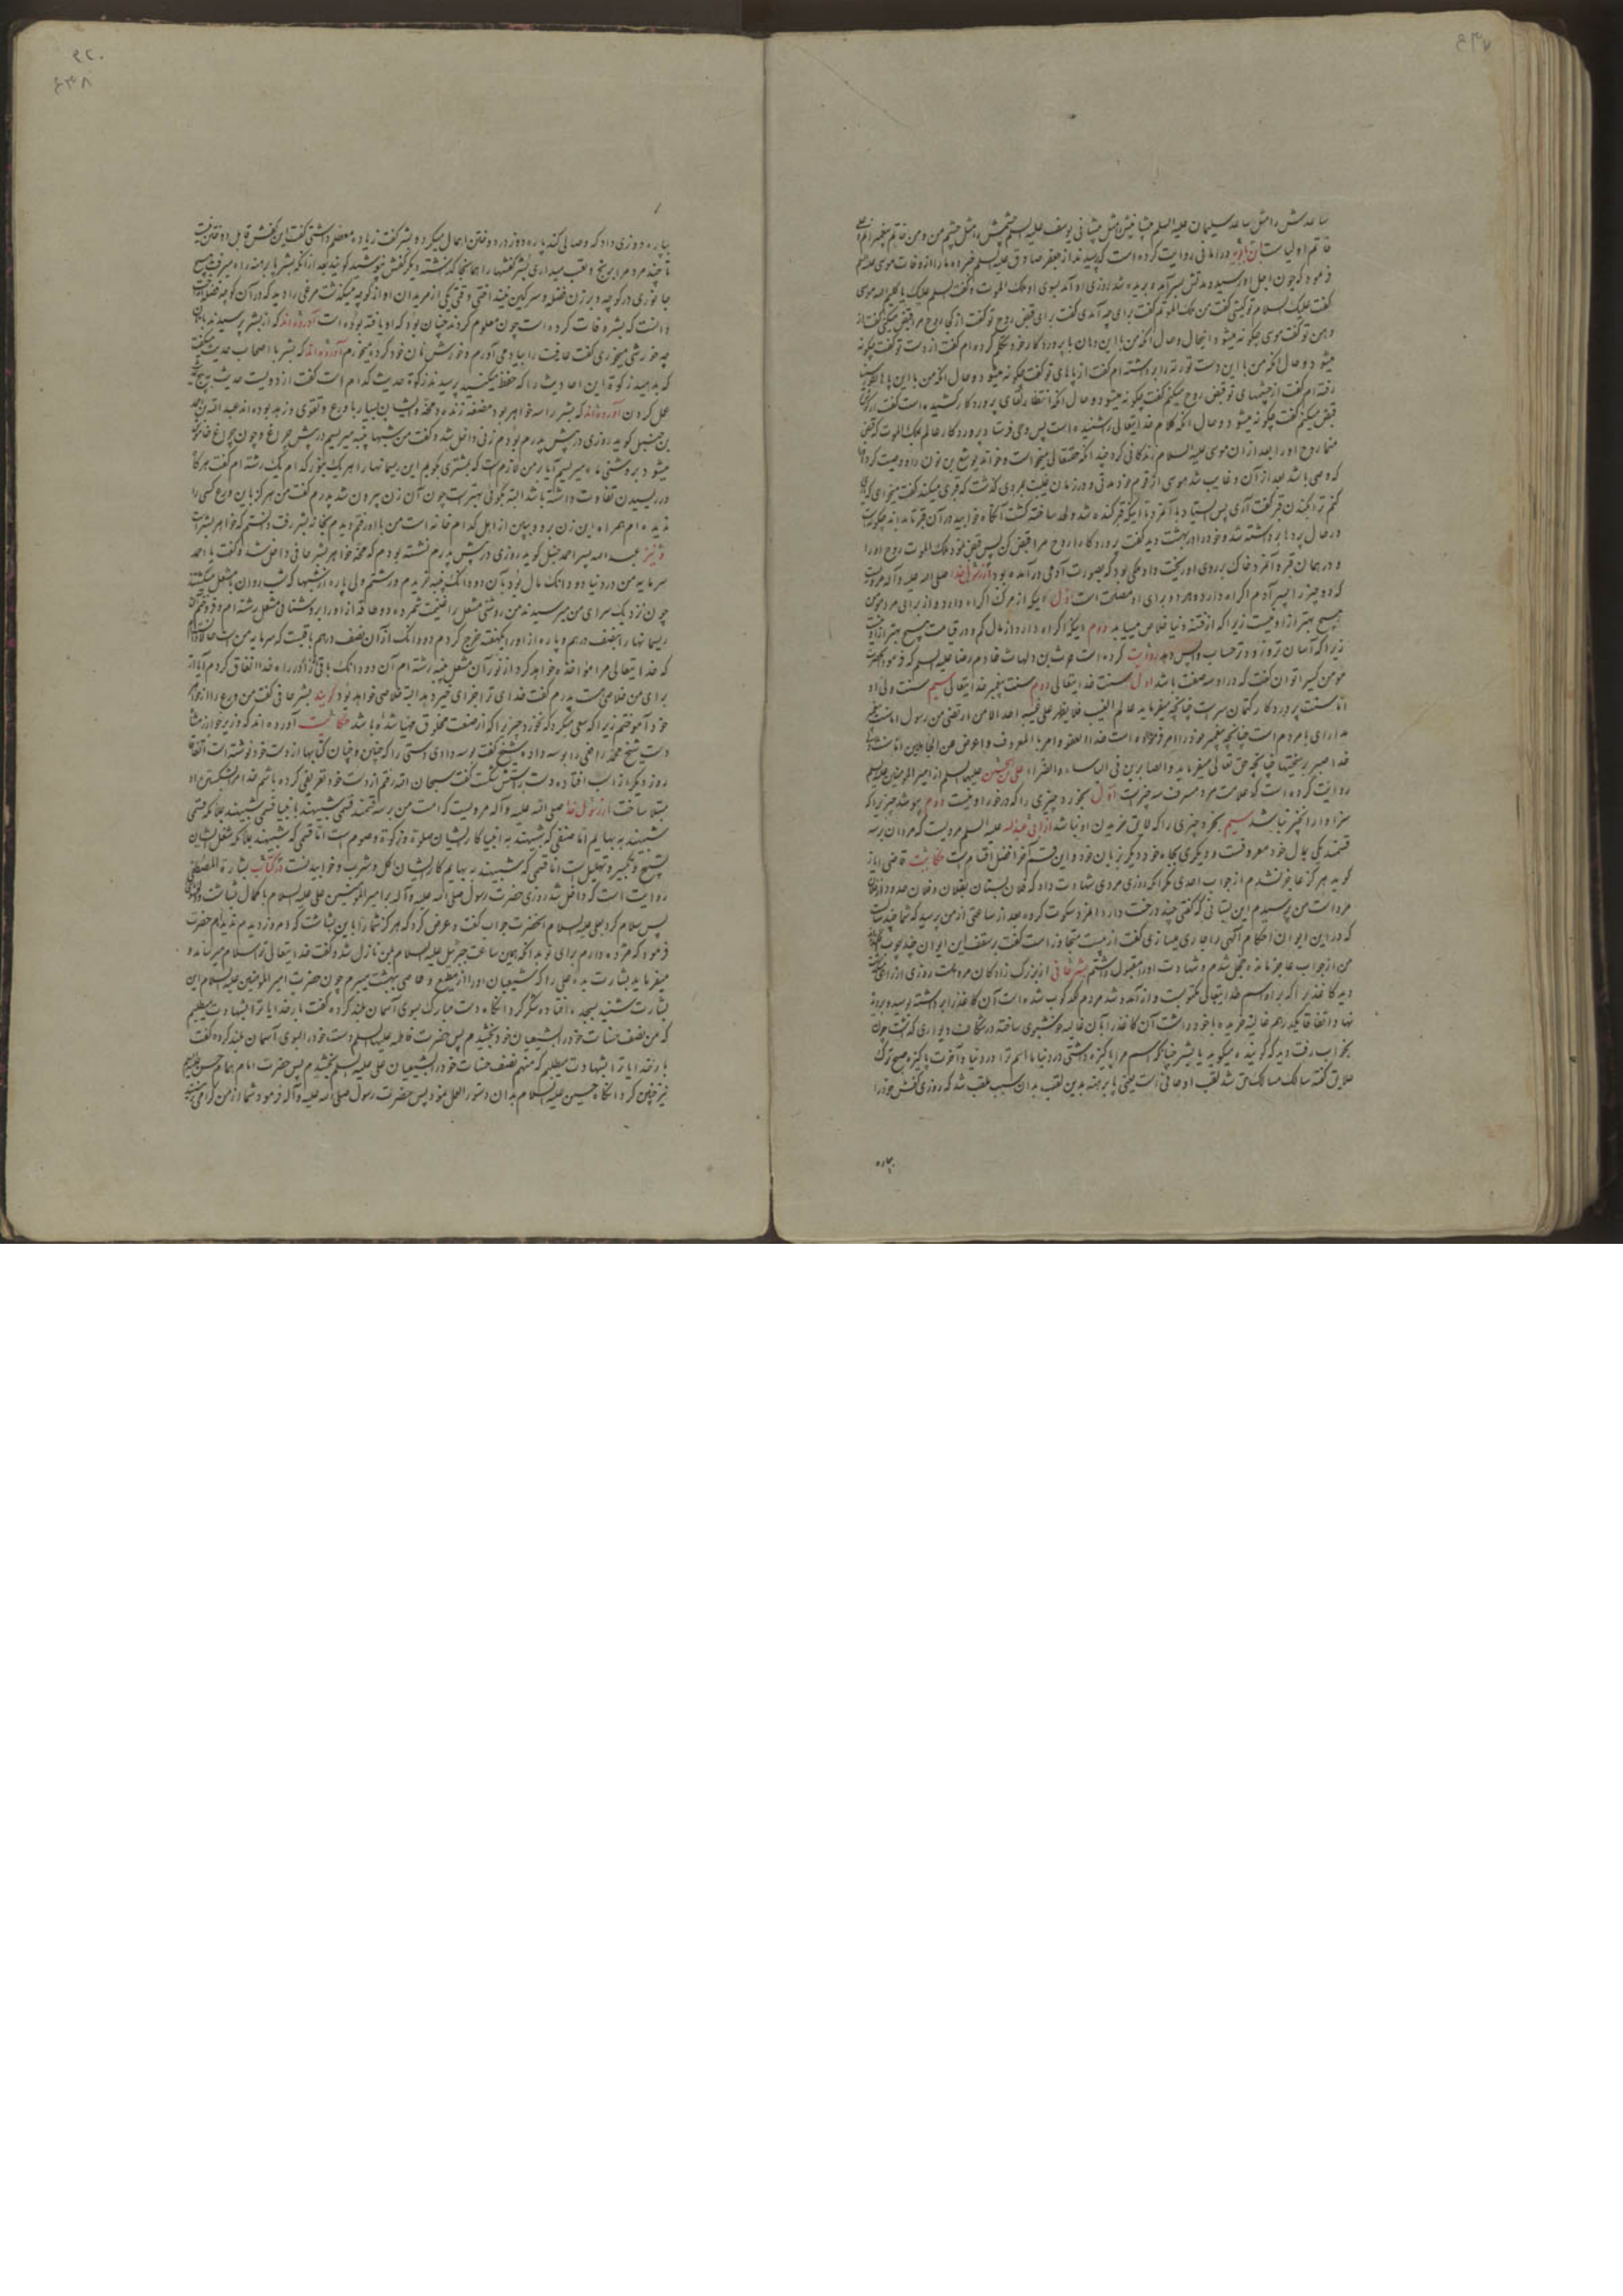 ساعدش را مثل ساعد سلیمان علیه السلم پیشانیش مثل پیشانی یوسف علیه السلم چشمش مثل چشم من و من خاتم پیغمبرانم
خاتم اولیاست ابن بابویه در امالی روایت کرده است که پرسیدند از جعفر صادق علیه السلم خبر ده ما را از وفات موسی علیه السلم
فرمود که چون اجل او رسید و مدتش بسر آمد و بریده شد روزی او آمد بسوی او ملک الموت و گفت السلم علیک یا کلیم الله موسی
گفت علیک السلام تو کیستی گفت من ملک الموتم گفت برای چه آمدی گفت برای قبض روح تو گفت از کجا روح مرا قبض میکنی گفت از
دهن تو گفت موسی چگونه میشود و حال آنکه من با این دهان با پروردکار خود تکلم کرده ام گفت از دست تو گفت چگونه
میشود و حال آنکه من با این دست توریة را برداشته ام گفت از پاهای تو گفت چگونه میشود و حال آنکه من با این پا بطور سینا
رفته ام گفت از چشمهای تو قبض روح میکنم گفت چگونه میشود و حال آنکه انتظار لقای پروردکار کشیده است گفت از گوش
قبض میکنم گفت چگونه میشود و حال آنکه کلام خدایتعالی را شنیده است پس وحی فرستاد پروردکار عالم بملک الموت که قبض
منما روح او را بعد از آن موسی علیه السلام زندگانی کرد چندانکه حقتعالی میخواست و خواند یوشع بن نون را و وصیت کرد
که وصی باشد بعد از آن و غایب شد موسی از قوم خود مدتی و در زمان غیبت بمردی گذشت که قبری میکند گفت میخواهی که
کنم ترا بکندن قبر گفت آری پس ایستاد با آنمرد تا آنکه قبر کنده شد و لحد ساخته گشت آنگاه خوابید در آن قبر تا بداند چگونه است
در حال پرده برداشته شد و خود را در بهشت دید گفت پروردکارا روح مرا قبض کن پس قبض نمود ملک الموت روح او را
و در همان قبر و آنمرد خاک بر روی او ریخت و او ملکی بود که بصورت آدمی در آمده بود از رسول خدا صلی الله علیه و آله مرویست
که دو چیز را پسر آدم اکراه دارد و هر دو برای او مصلحت است اول آنکه از مرگ اکراه دارد و از برای مرد مؤمن
هیچ بهتر از او نیست زیرا که از فتنه دنیا خلاص میباید دوم اینکه اکراه دارد از مال کم و در قیامت هیچ بهتر از او نیست
زیرا که آسان تر و زودتر حساب واپس دهد روایت کرده است حرث بن دلهاث خادم رضا علیه السلم که فرمود آنحضرت
مؤمن کسیرا توان گفت که در او سه صفت باشد اول سنت خدایتعالی دوم سنت پیغمبر خدایتعالی سیم سنت ولی او
اما سنت پروردکار کتمان سر است چنانچه میفرماید عالم الغیب فلا یظهر علی غیبه احدا الا من ارتضی من رسول اما سنت پیغمبر
مدارای با مردم است چنانچه پیغمبر خود را امر فرموده است خذ العفو و امر بالمعروف و اعرض عن الجاهلین اما سنت ولی
خدا صبر بر سختیها چنانچه حق تعالی میفرماید و الصابرین فی الباساء و الضراء علی بن الحسین علیهما السلم از امیر المومنین علیه السلم
روایت کرده است که علامت مرد مسرف سه چیز است اول بخورد چیزی را که در خور او نیست دوم بپوشد چیزیرا که
سزاوار آنچیز نباشد سیم بخرد چیزی را که لایق خریدن او نباشد از ابی عبدالله علیه السلم مرویست که مردان بر سه
قسمند یکی بدل خود معروفست و دیگری بجاه خود و دیگر بزبان خود و این قسم آخر افضل اقسام است حکایت قاضی ایاز
گوید هرگز عاجز نشدم از جواب احدی مگر آنکه روزی مردی شهادت داد که فلان بستان بفلان و فلان حدود از فلان
مرد است من پرسیدم این بستانی که گفتی چند درخت دارد آنمرد سکوت کرده بعد از ساعتی از من پرسید که شما چند سال است
که در این ایوان احکام آلهی را جاری میسازی گفت از بیست متجاوز است گفت بر سقف این ایوان چند چوب است
من از جواب عاجز مانده خجل شدم و شهادت او را مقبول داشتم بشر حافی از بزرگ زادگان مرو است روزی در راه میرفت
دید کاغذیرا که بر او اسم خدایتعالی مکتوبست و از آمد و شد مردم لگد کوب شده است آن کاغذ را برداشته بوسید و بر آن
نهاد و اتفاقا یکدرهم غالیه خریده با خود داشت آن کاغذ را بآن غالیه خوشبوی ساخته در شکاف دیواری گذاشت چون
بخواب رفت دید که گوینده میگوید یا بشر چنانکه اسم مرا پاکیزه داشتی در دنیا ما اسم ترا در دنیا و آخرت پاکیزه صبح ترک
علایق گفته سالک مسالک حق شد لقب او حافی است یعنی پا برهنه بدین لقب بدان سبب ملقب شد که روزی کفش خود را
بپاره
بپاره دوزی داد که وصالی کند پاره دوز در دوختن اهمال میکرد بشر گفت زیاده معطلم داشتی گفت این کفش قابل دوختن نیست
تا چند مردم را برنج و تعب میداری بشر کفشها را همانجا گذاشته دیگر کفش نپوشید گویند بعد از آنکه بشر پا برهنه راه میرفت هیچ
جانوری در کوچه و برزن فضله و سرگین نمیانداختی وقتی یکی از مریدان او از کوچه میگذشت مرغی را دید که در آن کوچه فضله انداخت
دانست که بشر وفات کرده است چون معلوم کردند چنان بود که او یافته بوده است آورده اند که از بشر پرسیدند نان
چه خورشی میخوری گفت عافیت را بیاد می آورم و خورش نان خود کرده میخورم آورده اند که بشر با اصحاب حدیث میگفت
که بدهید زکوة این احادیث را که حفظ میکنید پرسیدند زکوة حدیث کدام است گفت از دویست حدیث به پنج حدیث
عمل کردن آورده اند که بشر را سه خواهر بود مضغه زبده و مخه و ایشان بسیار با ورع و تقوی و زهد بوده اند عبد الله بن احمد
بن حنبل گوید روزی در پیش پدرم بودم زنی داخل شد و گفت من شبها پنبه میریسم در پیش چراغ و چون چراغ خاموش
میشود بروشنی ماه میریسم آیا بر من لازمست که بمشتری گویم این ریسمانها را هر یک بنور کدام یک رشته ام گفت هر گاه
در ریسیدن تفاوت داشته باشد البته بگوئی بهتر است چون آن زن بیرون شد پدرم گفت من هرگز باین ورع کسی را
ندیده ام همراه این زن برو و ببین از اهل کدام خانه است من با او رفتم دیدم بخانه بشر رفت دانستم که خواهر بشر است
و نیز عبد الله پسر احمد حنبل گوید روزی در پیش پدرم نشسته بودم که مخه خواهر بشر حافی داخل شد و گفت یا احمد
سرمایه من در دنیا دو دانگ مال بود بآن دو دانگ پنبه خریدم و رشتم ولی پاره از شبها که شب روان با مشعل میگشتند
چون نزدیک سرای من میرسیدند من روشنی مشعل را غنیمت شمرده دو طاقه از او را بروشنائی مشعل رشته ام و فروختم
ریسمانها را بنصف درهم و پاره از او را یکهفته خرج کردم دو دانگ از آن نصف درهم باقیست که سرمایه من است حالا
که خدایتعالی مرا مؤاخذه خواهد کرد از نور آن مشعل پنبه رشته ام آن دو دانگ باقی را در راه خدا انفاق کردم آیا از
برای من خلاصی هست پدرم گفت خدای ترا جزای خیر دهد البته خلاصی خواهد بود گویند بشر حافی گفت من ورع را از خواهر
خود آموختم زیرا که سعی میکرد که نخورد چیزیرا که از صنعت مخلوق مهیا شده باشد حکایت آورده اند که وزیر خوارزمشاه
دست شیخ محمد رافعی را بوسه داد شیخ گفت بوسه دادی دستی را که چنین و چنان کتابها از دست خود نوشته است اتفاقا
روز دیگر از اسب افتاده دست راستش شکست گفت سبحان الله رفتم از دست خود تعریفی کرده باشم خدا مرا بشکستن او
مبتلا ساخت از رسول خدا صلی الله علیه و آله مرویست که امت من بر سه قسمند قسمی شبیهند بانبیا قسمی شبیهند بملائکه قسمی
شبیهند به بهایم اما صنفی که شبیهند به انبیا کار ایشان صلوة و زکوة و صوم است اما قسمی که شبیهند بملائکه شغل ایشان
تسبیح و تکبیر و تهلیل است اما قسمی که شبیهند به بهایم کار ایشان اکل و شرب و خوابیدنست در کتاب بشارة المصطفی
روایت است که داخل شد روزی حضرت رسول صلی الله علیه و آله بر امیر المؤمنین علی علیه السلام با کمال بشاشت
پس سلام کرد بعلی علیه السلام آنحضرت جواب گفت و عرض کرد که هرگز شما را باین بشاشت که امروز دیدم ندیده ام حضرت
فرمود که مژده دارم برای تو بدانکه همین ساعت جبرئیل علیه السلام بمن نازل شد و گفت خدایتعالی ترا سلام میرساند و
میفرماید بشارت بده علی را که شیعیان او را از مطیع و عاصی ببهشت میبرم چون حضرت امیر المؤمنین علیه السلام این
بشارت شنید بسجده افتاده شکر کرد آنگاه دست مبارک بسوی آسمان بلند کرده گفت بار خدایا ترا بشهادت میطلبم
که من نصف حسنات خود را بشیعیان خود بخشیدم پس حضرت فاطمه علیها السلم دست خود را بسوی آسمان بلند کرده گفت
بار خدایا ترا بشهادت میطلبم که منهم نصف حسنات خود را بشیعیان علی علیه السلم بخشیدم پس حضرت امام همام حسن علیه السلم
نیز چنین کرد آنگاه حسین علیه السلام بدان دستور العمل نمود پس حضرت رسول صلی الله علیه و آله فرمود شما از من گرامی